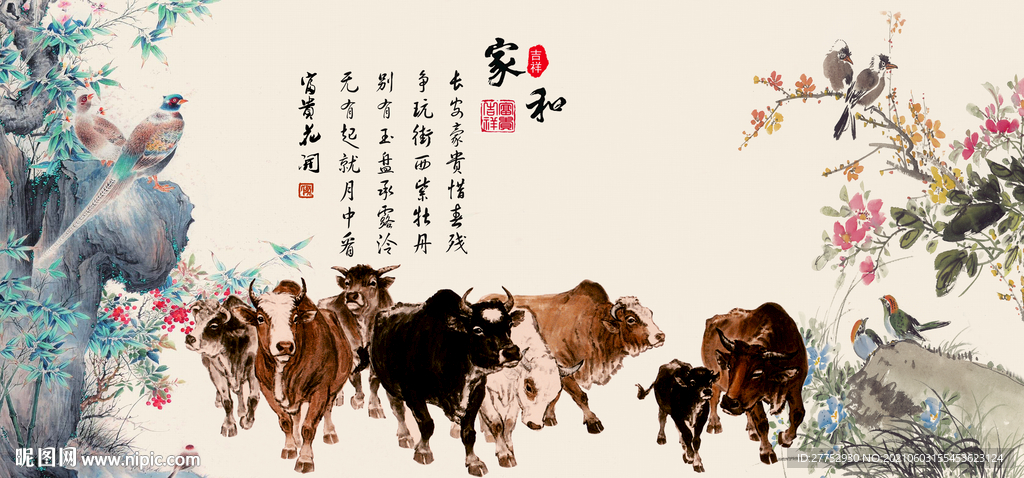 家和
吉祥
富貴吉祥
长安豪贵惜春残
争玩街西紫牡丹
别有玉盘承露冷
无有起就月中看
富贵花开
昵图网 www.nipic.com
ID:27753930 NO:20210603155453623124